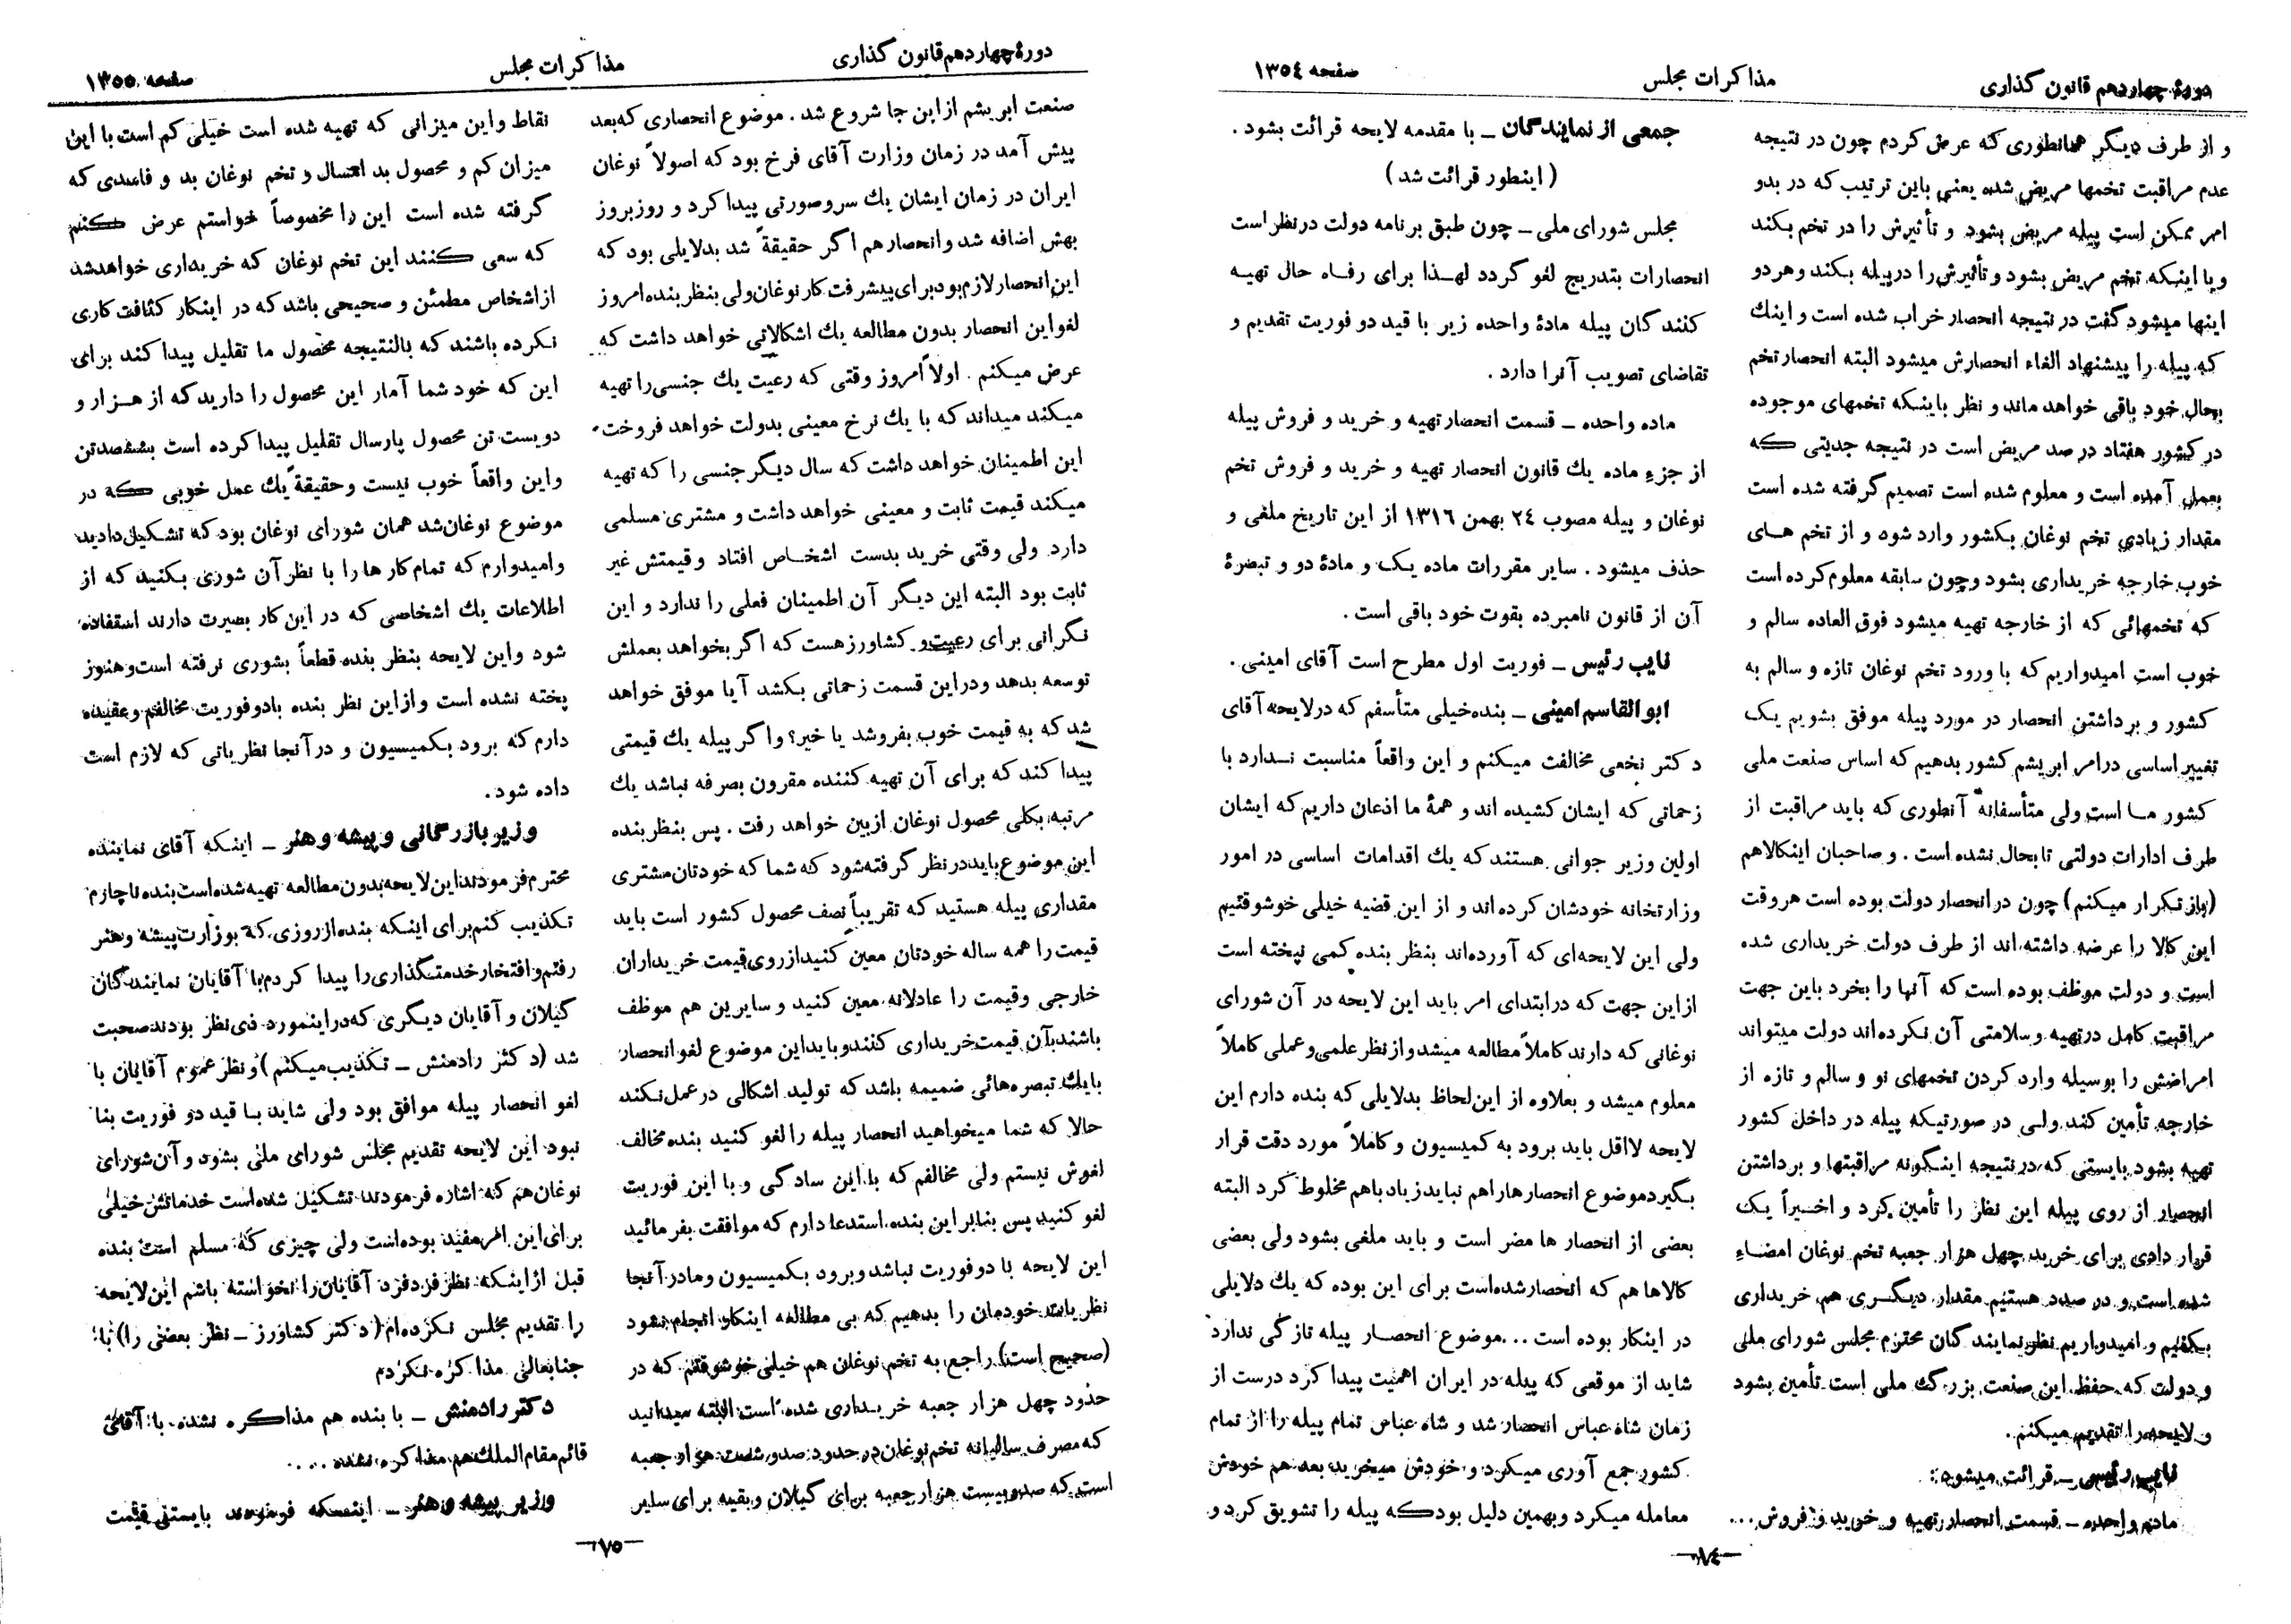 دورهٔ چهاردهم قانون گذاری
مذاکرات مجلس
صفحه ١٣٥٤
و از طرف دیگر همانطوری که عرض کردم چون در نتیجه
عدم مراقبت تخمها مریض شده یعنی باین ترتیب که در بدو
امر ممکن است پیله مریض بشود و تأثیرش را در تخم بکند
و یا اینکه تخم مریض بشود و تأثیرش را در پیله بکند و هر دو
اینها میشود گفت در نتیجه انحصار خراب شده است و اینك
که پیله را پیشنهاد الغاء انحصارش میشود البته انحصار تخم
بحال خود باقی خواهد ماند و نظر باینکه تخمهای موجوده
در کشور هفتاد در صد مریض است در نتیجه جدیتی که
بعمل آمده است و معلوم شده است تصمیم گرفته شده است
مقدار زیادی تخم نوغان بکشور وارد شود و از تخم های
خوب خارجه خریداری بشود و چون سابقه معلوم کرده است
که تخمهائی که از خارجه تهیه میشود فوق العاده سالم و
خوب است امیدواریم که با ورود تخم نوغان تازه و سالم به
کشور و برداشتن انحصار در مورد پیله موفق بشویم یک
تغییر اساسی در امر ابریشم کشور بدهیم که اساس صنعت ملی
کشور ما است ولی متأسفانه آنطوری که باید مراقبت از
طرف ادارات دولتی تا بحال نشده است . و صاحبان اینکالاهم
(باز تکرار میکنم) چون در انحصار دولت بوده است هر وقت
این کالا را عرضه داشته‌اند از طرف دولت خریداری شده
است و دولت موظف بوده است که آنها را بخرد باین جهت
مراقبت کامل در تهیه و سلامتی آن نکرده‌اند دولت میتواند
امراضش را بوسیله وارد کردن تخمهای نو و سالم و تازه از
خارجه تأمین کند ولی در صورتیکه پیله در داخل کشور
تهیه بشود بایستی که در نتیجه اینگونه مراقبتها و برداشتن
انحصار از روی پیله این نظر را تأمین کرد و اخیراً یک
قرار دادی برای خرید چهل هزار جعبه تخم نوغان امضاء
شده است و در صدد هستیم مقدار دیگری هم خریداری
بکنیم و امیدواریم نظر نمایندگان محترم مجلس شورای ملی
و دولت که حفظ این صنعت بزرگ ملی است تأمین بشود
و لایحه را تقدیم میکنم.
نایب رئیس ــ قرائت میشود :
ماده واحده ــ قسمت انحصار تهیه و خرید و فروش ...
جمعی از نمایندگان ــ با مقدمه لایحه قرائت بشود .
( اینطور قرائت شد )
مجلس شورای ملی ــ چون طبق برنامه دولت در نظر است
انحصارات بتدریج لغو گردد لهذا برای رفاه حال تهیه
کنندگان پیله مادهٔ واحده زیر با قید دو فوریت تقدیم و
تقاضای تصویب آنرا دارد .
ماده واحده ــ قسمت انحصار تهیه و خرید و فروش پیله
از جزء ماده یك قانون انحصار تهیه و خرید و فروش تخم
نوغان و پیله مصوب ٢٤ بهمن ١٣١٦ از این تاریخ ملغی و
حذف میشود . سایر مقررات ماده یک و مادهٔ دو و تبصرهٔ
آن از قانون نامبرده بقوت خود باقی است .
نایب رئیس ــ فوریت اول مطرح است آقای امینی .
ابوالقاسم امینی ــ بنده خیلی متأسفم که در لایحه آقای
دکتر نخعی مخالفت میکنم و این واقعاً مناسبت ندارد با
زحماتی که ایشان کشیده اند و همهٔ ما اذعان داریم که ایشان
اولین وزیر جوانی هستند که یك اقدامات اساسی در امور
وزارتخانه خودشان کرده اند و از این قضیه خیلی خوشوقتیم
ولی این لایحه‌ای که آورده‌اند بنظر بنده کمی نپخته است
از این جهت که در ابتدای امر باید این لایحه در آن شورای
نوغانی که دارند کاملاً مطالعه میشد و از نظر علمی و عملی کاملاً
معلوم میشد و بعلاوه از این لحاظ بدلایلی که بنده دارم این
لایحه لااقل باید برود به کمیسیون و کاملاً مورد دقت قرار
بگیرد موضوع انحصارها را هم نباید زیاد باهم مخلوط کرد البته
بعضی از انحصار ها مضر است و باید ملغی بشود ولی بعضی
کالاها هم که انحصار شده است برای این بوده که یك دلایلی
در اینکار بوده است ... موضوع انحصار پیله تازگی ندارد
شاید از موقعی که پیله در ایران اهمیت پیدا کرد درست از
زمان شاه عباس انحصار شد و شاه عباس تمام پیله را از تمام
کشور جمع آوری میکرد و خودش میخرید بعد هم خودش
معامله میکرد و بهمین دلیل بود که پیله را تشویق کرد و
ــ٧٤ــ
دورهٔ چهاردهم قانون گذاری
مذاکرات مجلس
صفحه ١٣٥٥
صنعت ابریشم از این جا شروع شد . موضوع انحصاری که بعد
پیش آمد در زمان وزارت آقای فرخ بود که اصولاً نوغان
ایران در زمان ایشان یك سر و صورتی پیدا کرد و روز بروز
بهش اضافه شد و انحصار هم اگر حقیقةً شد بدلایلی بود که
این انحصار لازم بود برای پیشرفت کار نوغان ولی بنظر بنده امروز
لغو این انحصار بدون مطالعه یك اشکالاتی خواهد داشت که
عرض میکنم . اولاً امروز وقتی که رعیت یك جنسی را تهیه
میکند میداند که با یك نرخ معینی بدولت خواهد فروخت
این اطمینان خواهد داشت که سال دیگر جنسی را که تهیه
میکند قیمت ثابت و معینی خواهد داشت و مشتری مسلمی
دارد ولی وقتی خرید بدست اشخاص افتاد و قیمتش غیر
ثابت بود البته این دیگر آن اطمینان فعلی را ندارد و این
نگرانی برای رعیت و کشاورز هست که اگر بخواهد بعملش
توسعه بدهد و در این قسمت زحماتی بکشد آیا موفق خواهد
شد که به قیمت خوب بفروشد یا خیر؟ و اگر پیله یك قیمتی
پیدا کند که برای آن تهیه کننده مقرون بصرفه نباشد یك
مرتبه بکلی محصول نوغان از بین خواهد رفت . پس بنظر بنده
این موضوع باید در نظر گرفته شود که شما که خودتان مشتری
مقداری پیله هستید که تقریباً نصف محصول کشور است باید
قیمت را همه ساله خودتان معین کنید از روی قیمت خریداران
خارجی و قیمت را عادلانه معین کنید و سایرین هم موظف
باشند بآن قیمت خریداری کنند و باید این موضوع لغو انحصار
با یك تبصره‌هائی ضمیمه باشد که تولید اشکالی در عمل نکند
حالا که شما میخواهید انحصار پیله را لغو کنید بنده مخالف
لغوش نیستم ولی مخالفم که با این سادگی و با این فوریت
لغو کنید پس بنابراین بنده استدعا دارم که موافقت بفرمائید
این لایحه با دو فوریت نباشد و برود بکمیسیون و ما در آنجا
نظریات خودمان را بدهیم که بی مطالعه اینکار انجام نشود
(صحیح است) راجع به تخم نوغان هم خیلی خوشوقتم که در
حدود چهل هزار جعبه خریداری شده است البته میدانید
که مصرف سالیانه تخم نوغان در حدود صد و شصت هزار جعبه
است که صد و بیست هزار جعبه برای گیلان و بقیه برای سایر
نقاط و این میزانی که تهیه شده است خیلی کم است با این
میزان کم و محصول بد امسال و تخم نوغان بد و فاسدی که
گرفته شده است این را مخصوصاً خواستم عرض کنم
که سعی کنند این تخم نوغان که خریداری خواهد شد
از اشخاص مطمئن و صحیحی باشد که در اینکار کثافت کاری
نکرده باشند که بالنتیجه محصول ما تقلیل پیدا کند برای
این که خود شما آمار این محصول را دارید که از هزار و
دویست تن محصول پارسال تقلیل پیدا کرده است بششصد تن
و این واقعاً خوب نیست و حقیقةً یك عمل خوبی که در
موضوع نوغان شد همان شورای نوغان بود که تشکیل دادید
و امیدوارم که تمام کار ها را با نظر آن شوری بکنید که از
اطلاعات یك اشخاصی که در این کار بصیرت دارند استفاده
شود و این لایحه بنظر بنده قطعاً بشوری نرفته است و هنوز
پخته نشده است و از این نظر بنده با دو فوریت مخالفم و عقیده
دارم که برود بکمیسیون و در آنجا نظریاتی که لازم است
داده شود .
وزیر بازرگانی و پیشه و هنر ــ اینکه آقای نماینده
محترم فرمودند این لایحه بدون مطالعه تهیه شده است بنده ناچارم
تکذیب کنم برای اینکه بنده از روزی که بوزارت پیشه و هنر
رفتم و افتخار خدمتگذاری را پیدا کردم با آقایان نمایندگان
گیلان و آقایان دیگری که در اینمورد ذی نظر بودند صحبت
شد (دکتر رادمنش ــ تکذیب میکنم) و نظر عموم آقایان با
لغو انحصار پیله موافق بود ولی شاید با قید دو فوریت بنا
نبود این لایحه تقدیم مجلس شورای ملی بشود و آن شورای
نوغان هم که اشاره فرمودند تشکیل شده است خدماتش خیلی
برای این امر مفید بوده است ولی چیزی که مسلم است بنده
قبل از اینکه نظر فرد فرد آقایان را نخواسته باشم این لایحه
را تقدیم مجلس نکرده‌ام (دکتر کشاورز ــ نظر بعضی را) با
جنابعالی مذاکره نکردم
دکتر رادمنش ــ با بنده هم مذاکره نشده. با آقای
قائم مقام الملك هم مذاکره نشده ....
وزیر پیشه و هنر ــ اینکه فرمودند بایستی قیمت
ــ٧٥ــ